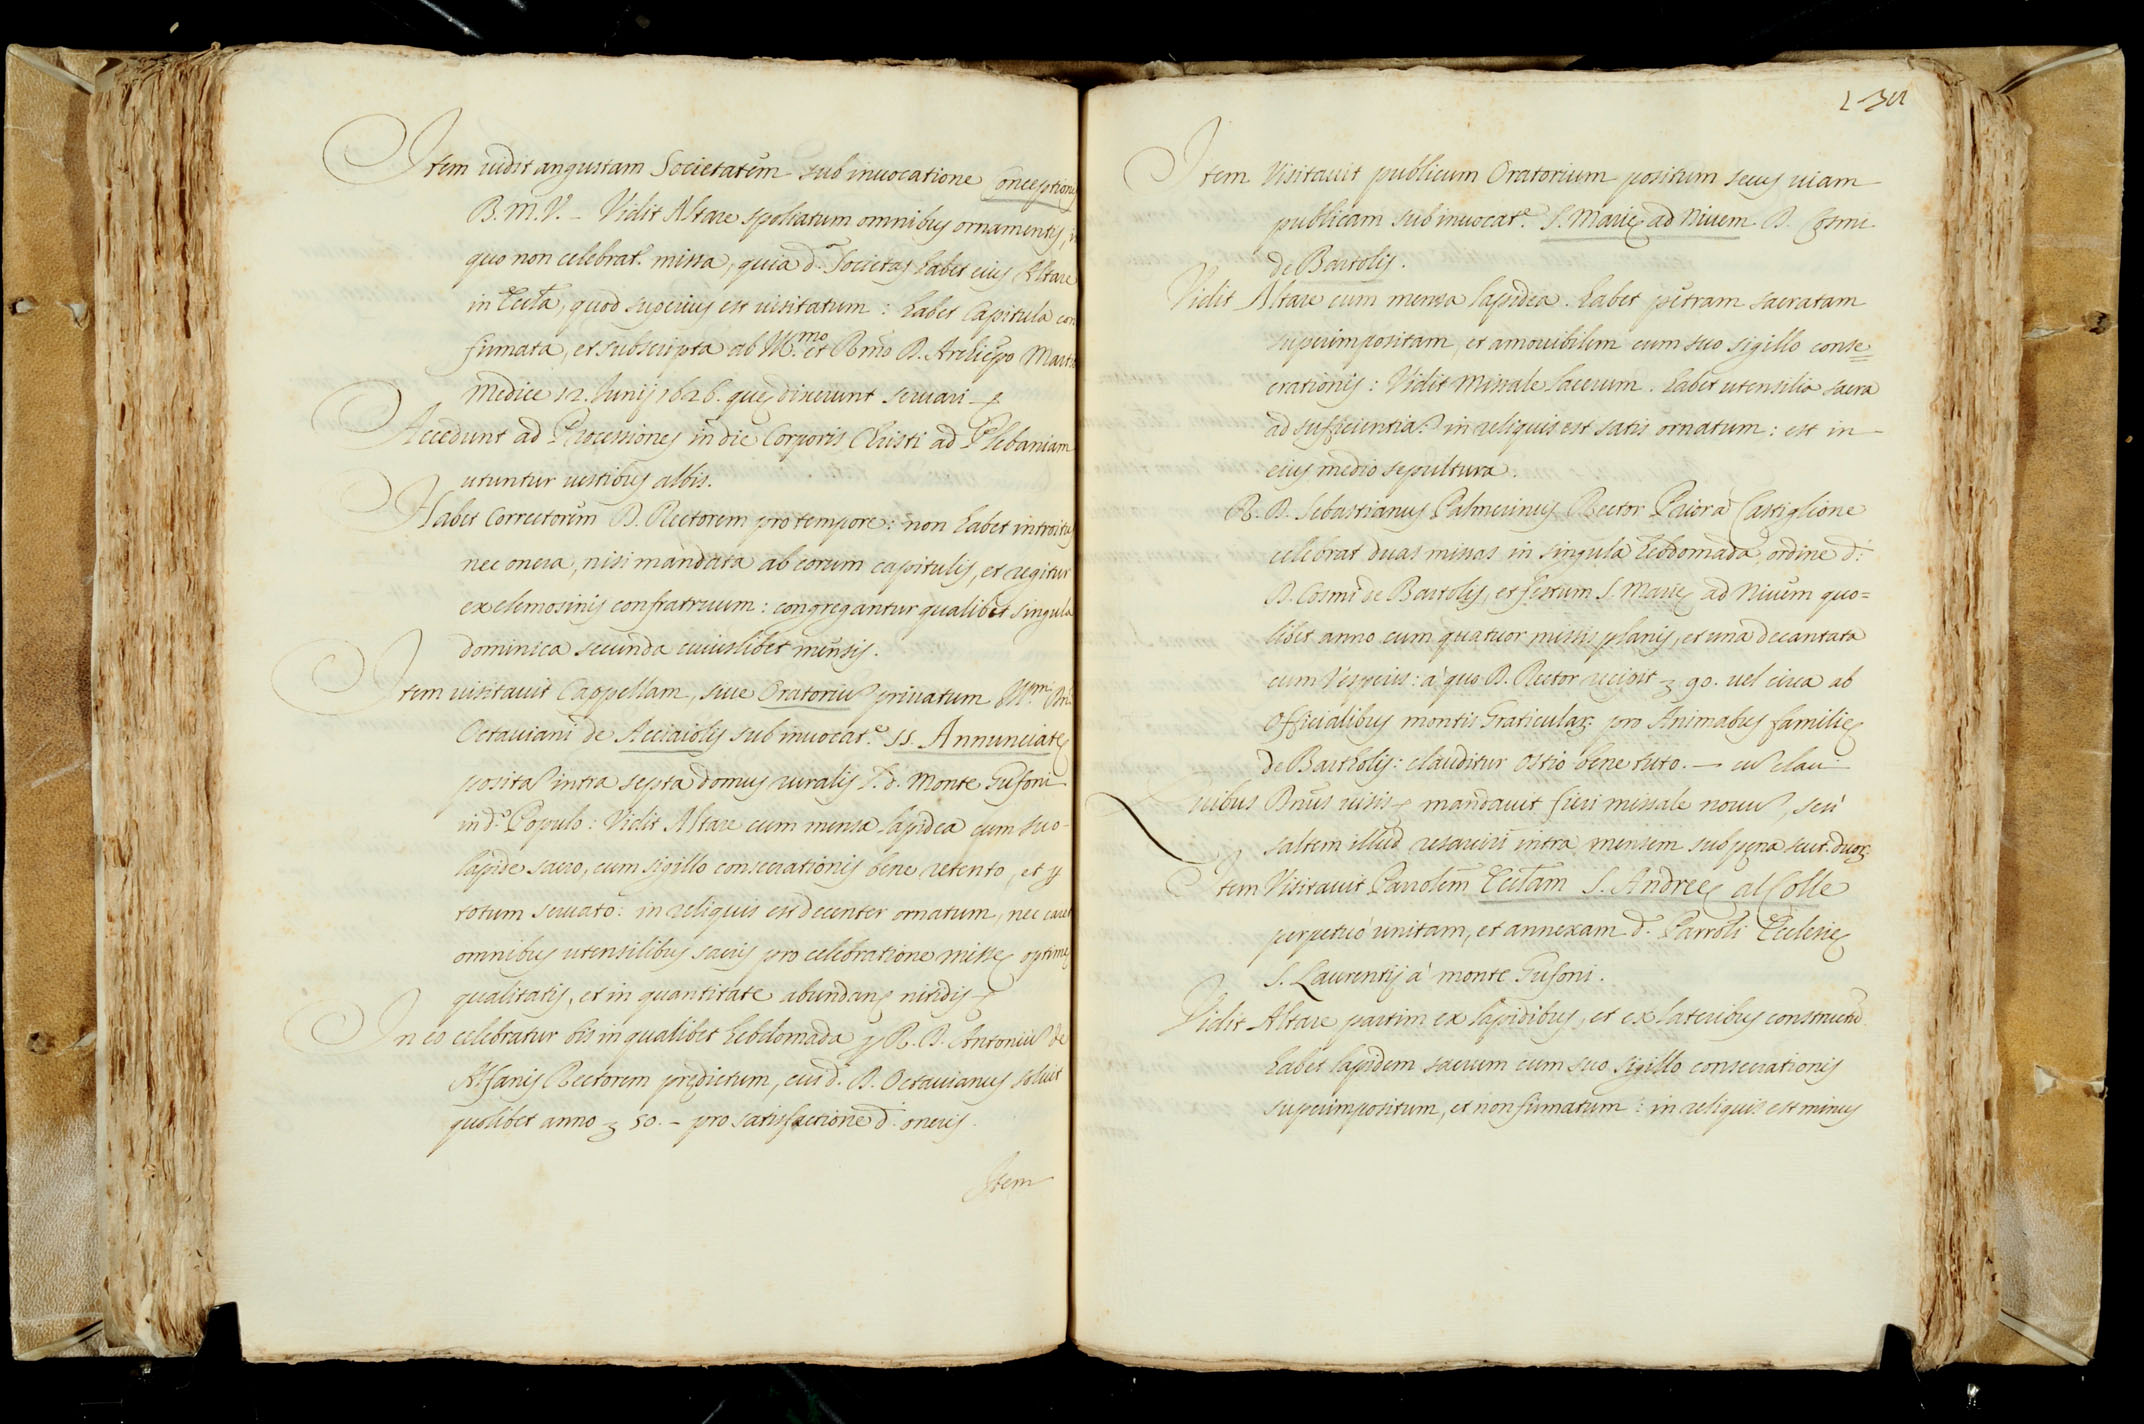 Item vidit angustam Societatem sub invocatione Conceptionis
B. M. V. – Vidit Altare spoliatum omnibus ornamentis, in
quo non celebrat. missa, quia d.ª Societas habet eius Altare
in Eccl.ª, quod superius est visitatum: habet Capitula con
firmata, et subscripta ab Ill.mo et R.mo D. Archiep̄o Martio
Medice 12. Junij 1626. quę dixerunt servari –
Accedunt ad Processiones in die Corporis Christi ad Plebaniam
utuntur vestibus albis.
Habet Correctorem D. Rectorem pro tempore: non habet introitus
nec onera, nisi mandata ab eorum capitulis, et regitur
ex elemosinis confratruum: congregantur qualibet singula
dominica secunda cuiuslibet mensis.
Item visitavit Cappellam, sive Oratoriũ privatum Ill.mi Dñi
Octaviani de Acciaiolis sub invocat.e SS. Annunciatę
positã intra septa domus ruralis l. d. Monte Gufoni
in d.º Populo: Vidit Altare cum mensa lapidea cum suo
lapide sacro, cum sigillo consecrationis bene retento, et p
totum servato: in reliquis est decenter ornatum, nec caret
omnibus utensilibus sacris pro celebratione missę optimę
qualitatis, et in quantitate abundans nitidis
In eo celebratur bis in qualibet hebdomada p R. D. Antoniũ de
Alfanis Rectorem prędictum, cui d. D. Octavianus solvit
quolibet anno 50. – pro satisfactione d. oneris.
Item
Item Visitavit publicum Oratorium positum secus viam
publicam sub invocat.e S. Marię ad Nivem D. Cosmi
de Bartolis.
Vidit Altare cum mensa lapidea. habet petram sacratam
superimpositam, et amovibilem cum suo sigillo conse=
crationis: Vidit Missale lacerum. habet utensilia sacra
ad sufficientiã: in reliquis est satis ornatum: est in
eius medio sepultura.
R. D. Sebastianus Palmerinus Rector Priorą Castiglione
celebrat duas missas in singula hebdomada, ordine d.
D. Cosmi de Bartolis, et festum S. Marię ad Nivem quo=
libet anno cum quatuor missis planis, et una decantata
cum Vesperis: à quo D. Rector recipit 90. vel circa ab
Officialibus montis Graticular. pro Animabus familię
de Bartholis: clauditur ostio bene tuto. – cũ clau
vibus Dñus visis mandavit fieri missale novũ, seù
saltem illud resarciri intra mensem sub pęna scut. duor.
Item Visitavit Parrolem Eccl.am S. Andreę al Colle
perpetuò unitam, et annexam d. Parroli Ecclesię
S. Laurentij à monte Gufoni.
Vidit Altare partim ex lapidibus, et ex lateribus constructũ
habet lapidem sacrum cum suo sigillo consecrationis
superimpositum, et non firmatum: in reliquis est minus